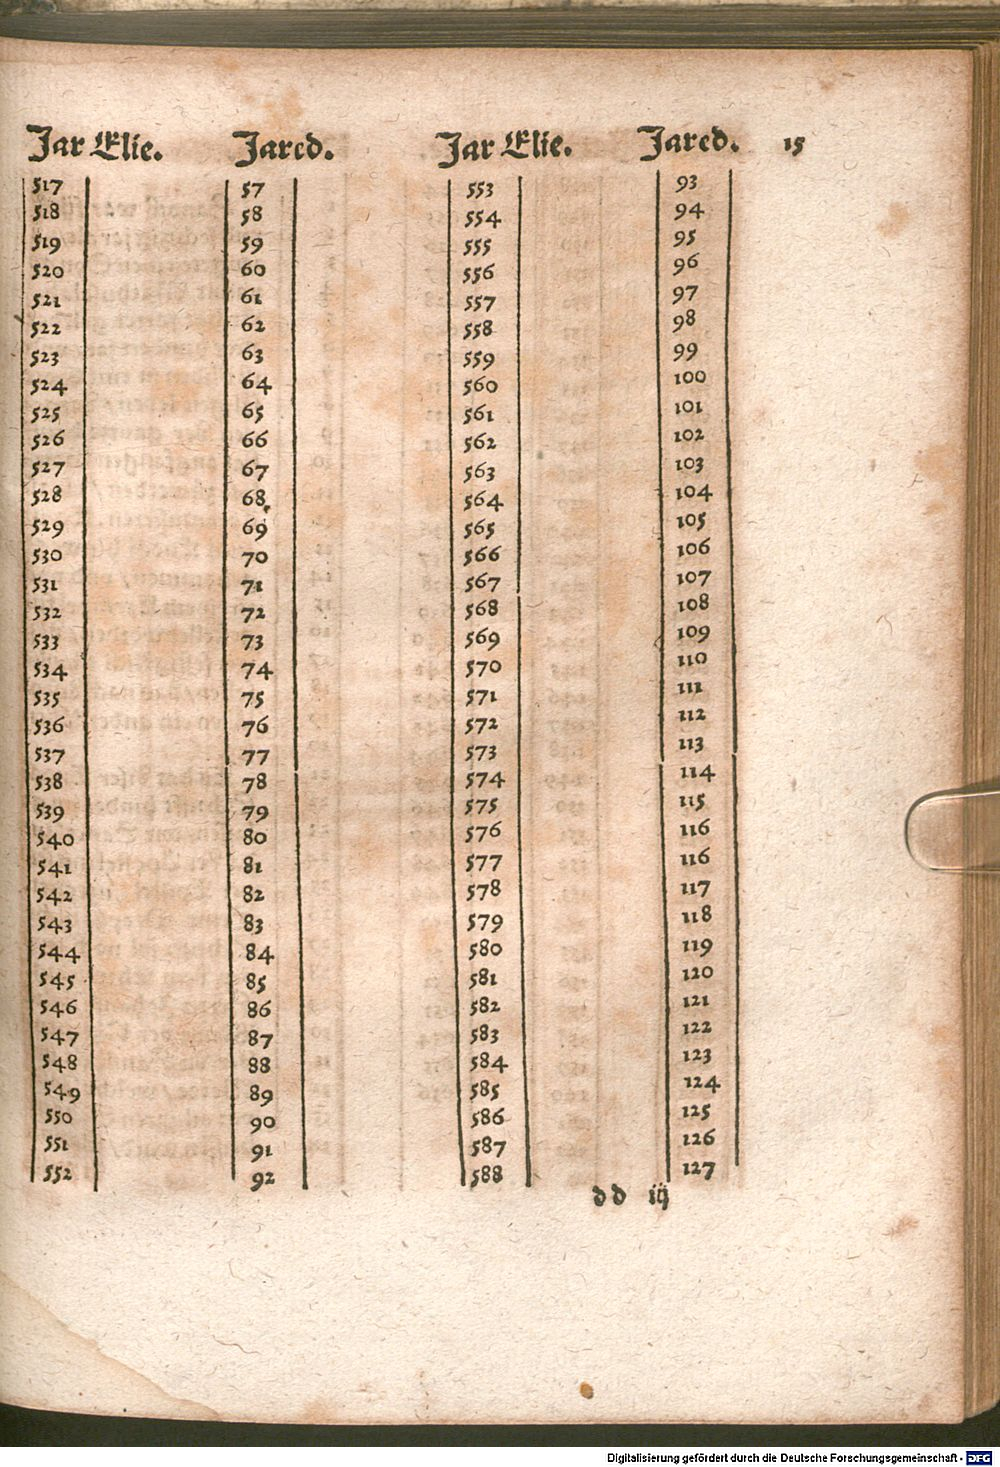 Jar Elie. Jared. Jar Elie. Jared. 15
517 57 553 93
518 58 554 94
519 59 555 95
520 60 556 96
521 61 557 97
522 62 558 98
523 63 559 99
524 64 560 100
525 65 561 101
526 66 562 102
527 67 563 103
528 68 564 104
529 69 565 105
530 70 566 106
531 71 567 107
532 72 568 108
533 73 569 109
534 74 570 110
535 75 571 111
536 76 572 112
537 77 573 113
538 78 574 114
539 79 575 115
540 80 576 116
541 81 577 116
542 82 578 117
543 83 579 118
544 84 580 119
545 85 581 120
546 86 582 121
547 87 583 122
548 88 584 123
549 89 585 124
550 90 586 125
551 91 587 126
552 92 588 127
dd iij
Digitalisierung gefördert durch die Deutsche Forschungsgemeinschaft - DFG